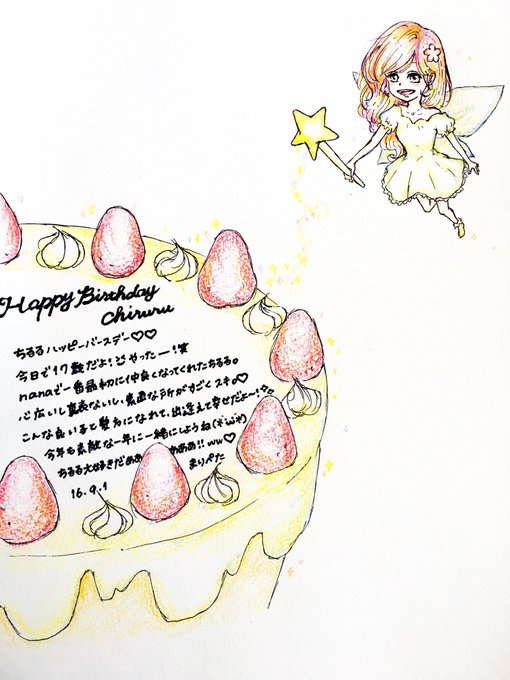 Happy Birthday
chiruru
ちるるハッピーバースデー♡♡
今日で17歳だよ！やったー！笑
nanaで一番最初に仲良くなってくれたちるる。
心広いし裏表ないし、素直な所がすごくスキ♡
こんな良い子と双方になれて、出逢えて幸せだよ〜！
今年も素敵な一年に一緒にしようね(*'ω'*)
ちるる大好きだああ めああ!! ww♡
16.9.1 まりぺた